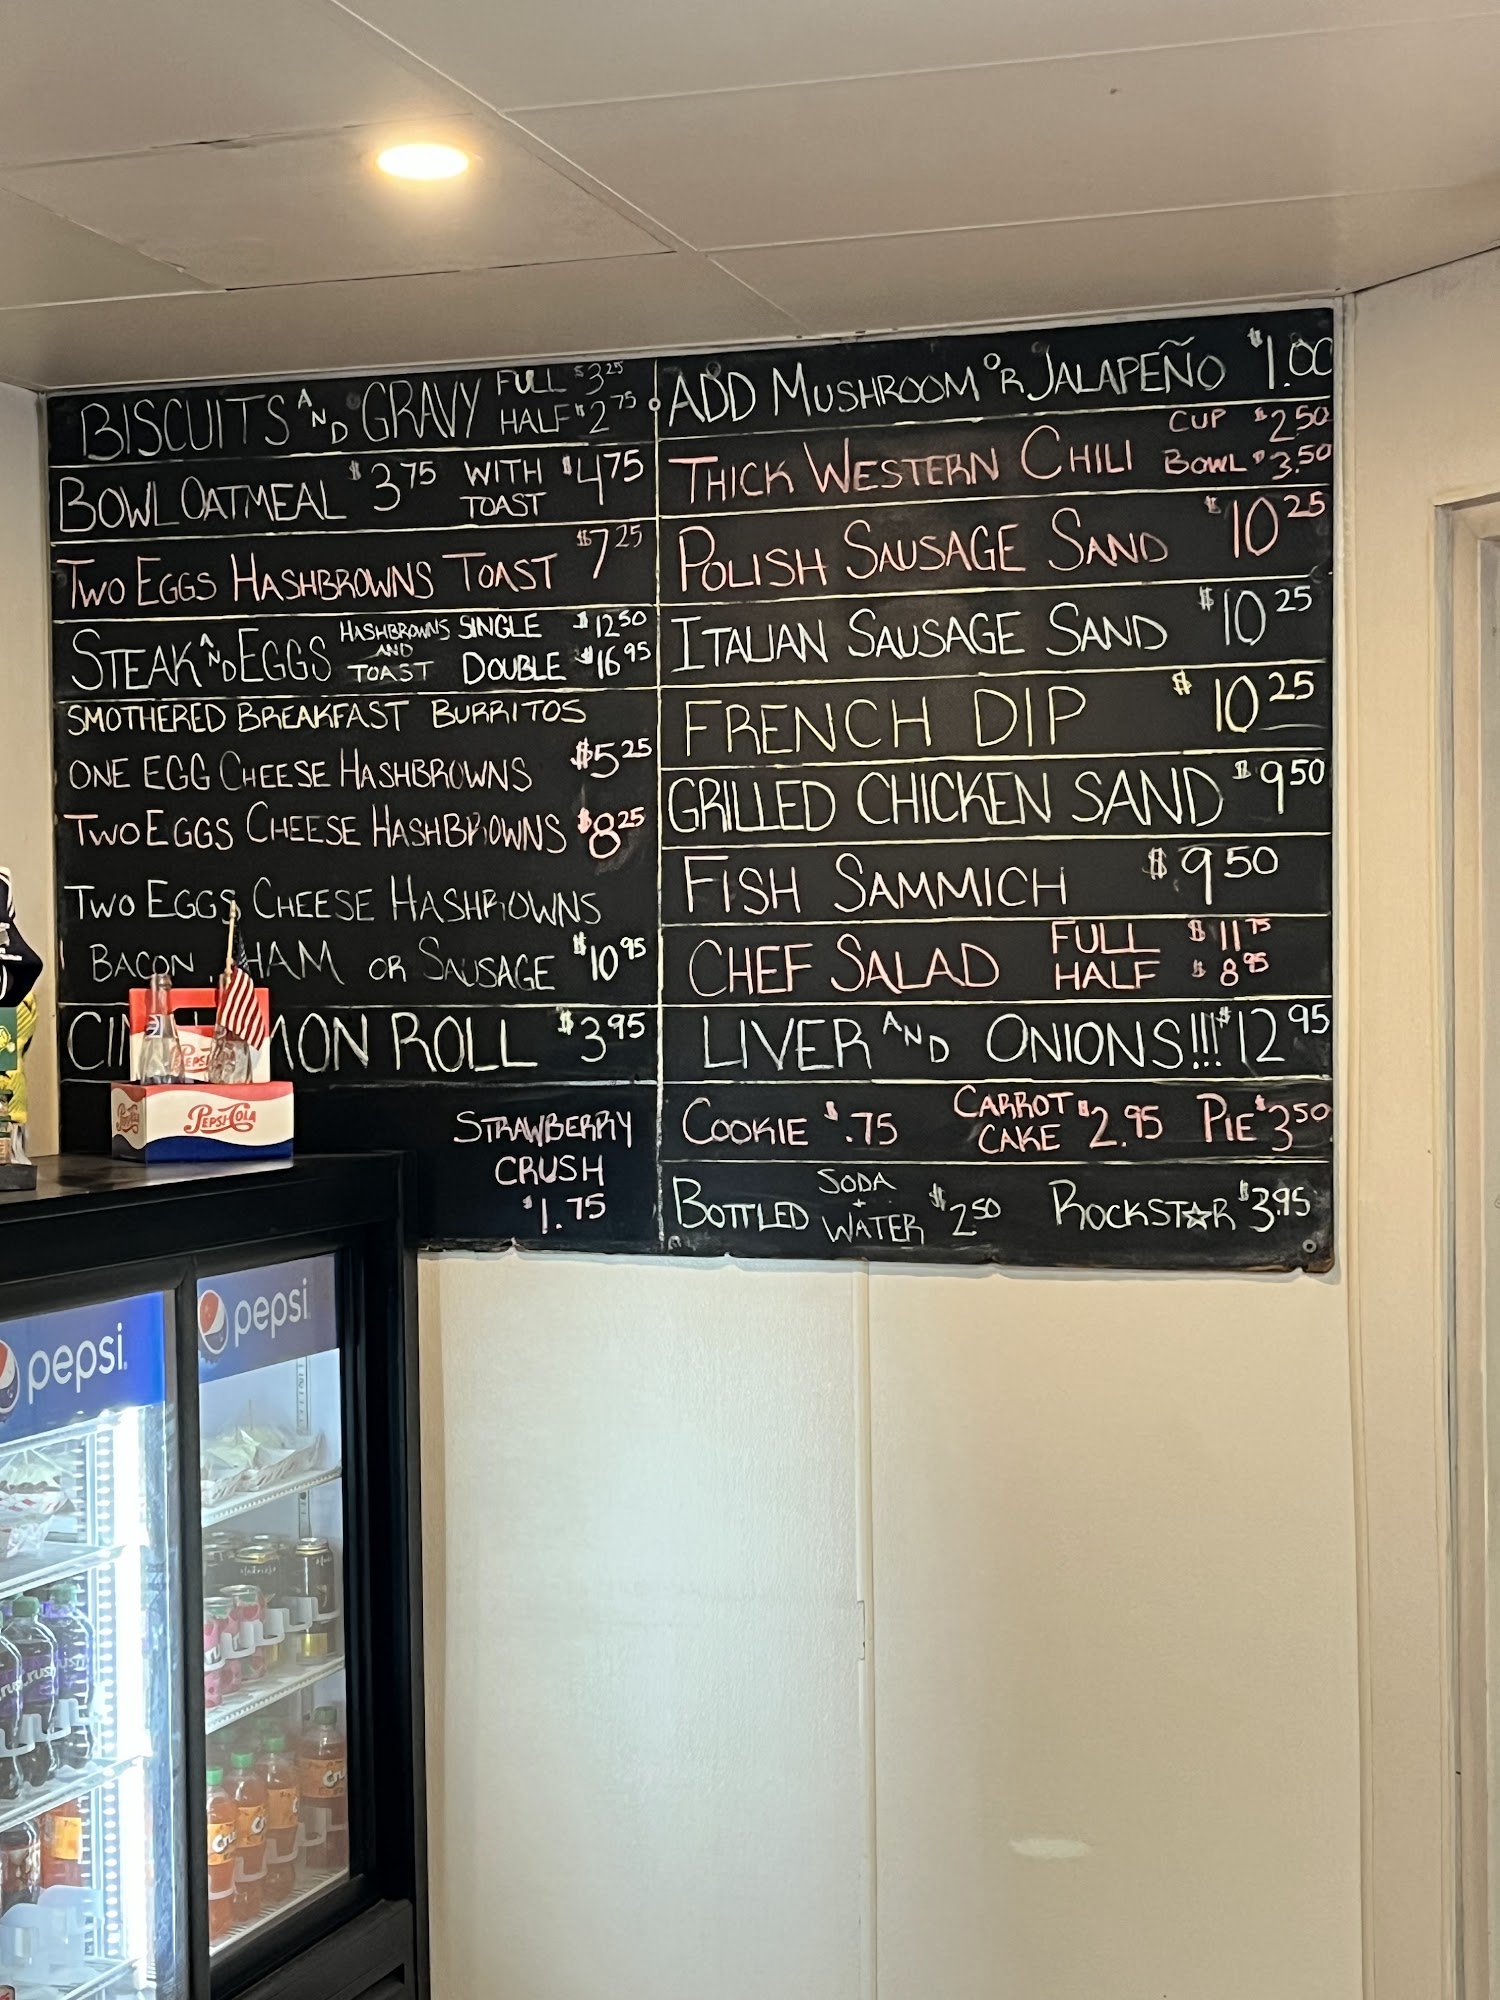 BISCUITS AND GRAVY FULL $3.25
HALF $2.75
BOWL OATMEAL $3.75 WITH TOAST $4.75
TWO EGGS HASHBROWNS TOAST $7.25
STEAK AND EGGS HASHBROWNS AND TOAST SINGLE $12.50
DOUBLE $16.95
SMOTHERED BREAKFAST BURRITOS
ONE EGG CHEESE HASHBROWNS $5.25
TWO EGGS CHEESE HASHBROWNS $8.25
TWO EGGS CHEESE HASHBROWNS
BACON, HAM OR SAUSAGE $10.95
ROLL $3.95
STRAWBERRY
CRUSH
$1.75
ADD MUSHROOM OR JALAPEÑO $1.00
THICK WESTERN CHILI CUP $2.50
BOWL $3.50
POLISH SAUSAGE SAND $10.25
ITALIAN SAUSAGE SAND $10.25
FRENCH DIP $10.25
GRILLED CHICKEN SAND $9.50
FISH SAMMICH $9.50
CHEF SALAD FULL $11.75
HALF $8.95
LIVER AND ONIONS!!! $12.95
COOKIE $.75 CARROT CAKE $2.95 PIE $3.50
BOTTLED SODA + WATER $2.50 ROCKST☆R $3.95
PEPSI-COLA
pepsi
pepsi
Crush